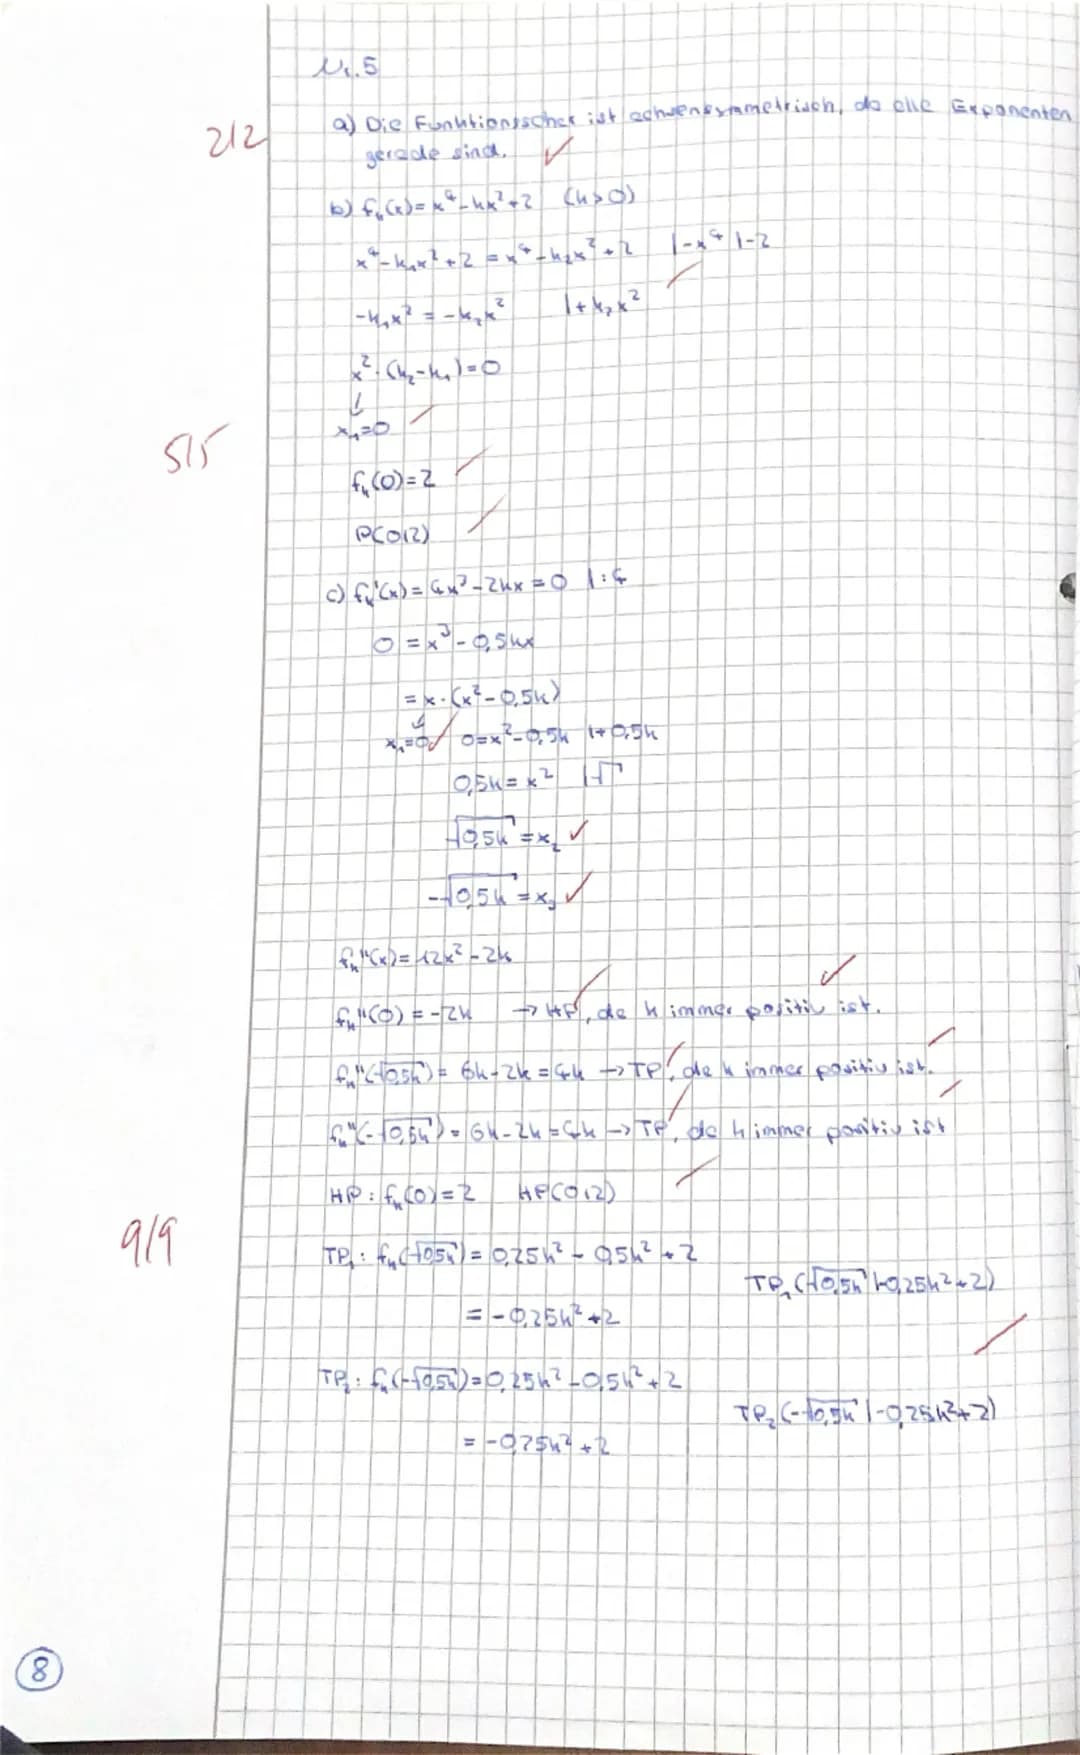 Nr. 5
2/2
a) Die Funktionsschar ist achsensymmetrisch, da alle Exponenten
gerade sind.
b) fₖ(x) = x⁴ - kx² + 2 (k > 0)
x⁴ - k₁x² + 2 = x⁴ - k₂x² + 2 |-x⁴ |-2
-k₁x² = -k₂x² |+k₂x²
x² · (k₂ - k₁) = 0
↓
x₁ = 0
5/5
fₖ(0) = 2
P(0|2)
c) fₖ'(x) = 4x³ - 2kx = 0 |:4
0 = x³ - 0,5kx
= x · (x² - 0,5k)
↓
x₁ = 0 0 = x² - 0,5k |+0,5k
0,5k = x² |√
√0,5k = x₂
-√0,5k = x₃
fₖ''(x) = 12x² - 2k
fₖ''(0) = -2k → HP, da k immer positiv ist.
fₖ''(√0,5k) = 6k - 2k = 4k → TP, da k immer positiv ist.
fₖ''(-√0,5k) = 6k - 2k = 4k → TP, da k immer positiv ist
HP: fₖ(0) = 2 HP(0|2)
9/9
TP₁: fₖ(√0,5k) = 0,25k² - 0,5k² + 2
TP₁(√0,5k | -0,25k² + 2)
= -0,25k² + 2
TP₂: fₖ(-√0,5k) = 0,25k² - 0,5k² + 2
TP₂(-√0,5k | -0,25k² + 2)
= -0,25k² + 2
8